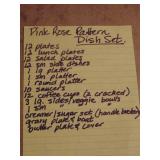 Pink Rose Pattern
Dish Set
12 plates
12 lunch plates
12 salad plates
12 sm side dishes
1 lg platter
1 sm platter
1 round platter
10 saucers
12 coffee cups (2 cracked)
3 lg. sides/veggie bowls
1 sm
creamer/sugar set (handle broken)
gravy plate & boat
butter plate & cover